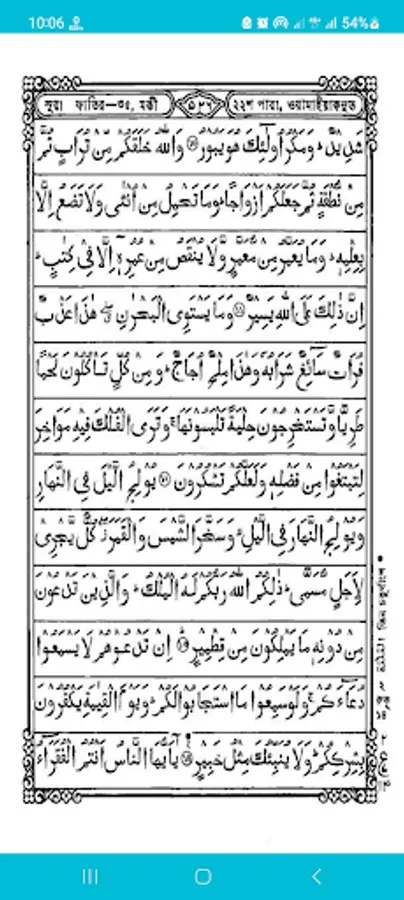 10:06 54%
সূরা ফাতির—৩৫, মক্কী ৫২৬ ২২শ পারা, ওয়ামাইয়াকনুত
شَدِيْدٌ ؕ وَمَكْرُ اُولٰٓئِكَ هُوَ يَبُوْرُ ⑩ وَاللّٰهُ خَلَقَكُمْ مِّنْ تُرَابٍ ثُمَّ
مِنْ نُّطْفَةٍ ثُمَّ جَعَلَكُمْ اَزْوَاجًا ؕ وَمَا تَحْمِلُ مِنْ اُنْثٰى وَلَا تَضَعُ اِلَّا
بِعِلْمِهٖ ؕ وَمَا يُعَمَّرُ مِنْ مُّعَمَّرٍ وَّلَا يُنْقَصُ مِنْ عُمُرِهٖٓ اِلَّا فِيْ كِتٰبٍ ؕ
اِنَّ ذٰلِكَ عَلَى اللّٰهِ يَسِيْرٌ ⑪ وَمَا يَسْتَوِى الْبَحْرٰنِ ۖ هٰذَا عَذْبٌ
فُرَاتٌ سَآئِغٌ شَرَابُهٗ وَهٰذَا مِلْحٌ اُجَاجٌ ؕ وَمِنْ كُلٍّ تَاْكُلُوْنَ لَحْمًا
طَرِيًّا وَّتَسْتَخْرِجُوْنَ حِلْيَةً تَلْبَسُوْنَهَا ۚ وَتَرَى الْفُلْكَ فِيْهِ مَوَاخِرَ
لِتَبْتَغُوْا مِنْ فَضْلِهٖ وَلَعَلَّكُمْ تَشْكُرُوْنَ ⑫ يُوْلِجُ الَّيْلَ فِى النَّهَارِ
وَيُوْلِجُ النَّهَارَ فِى الَّيْلِ ۙ وَسَخَّرَ الشَّمْسَ وَالْقَمَرَ ۖ كُلٌّ يَّجْرِيْ
لِاَجَلٍ مُّسَمًّى ؕ ذٰلِكُمُ اللّٰهُ رَبُّكُمْ لَهُ الْمُلْكُ ؕ وَالَّذِيْنَ تَدْعُوْنَ
مِنْ دُوْنِهٖ مَا يَمْلِكُوْنَ مِنْ قِطْمِيْرٍ ⑬ اِنْ تَدْعُوْهُمْ لَا يَسْمَعُوْا
دُعَآءَكُمْ ۚ وَلَوْ سَمِعُوْا مَا اسْتَجَابُوْا لَكُمْ ؕ وَيَوْمَ الْقِيٰمَةِ يَكْفُرُوْنَ
بِشِرْكِكُمْ ؕ وَلَا يُنَبِّئُكَ مِثْلُ خَبِيْرٍ ⑭ يٰٓاَيُّهَا النَّاسُ اَنْتُمُ الْفُقَرَآءُ